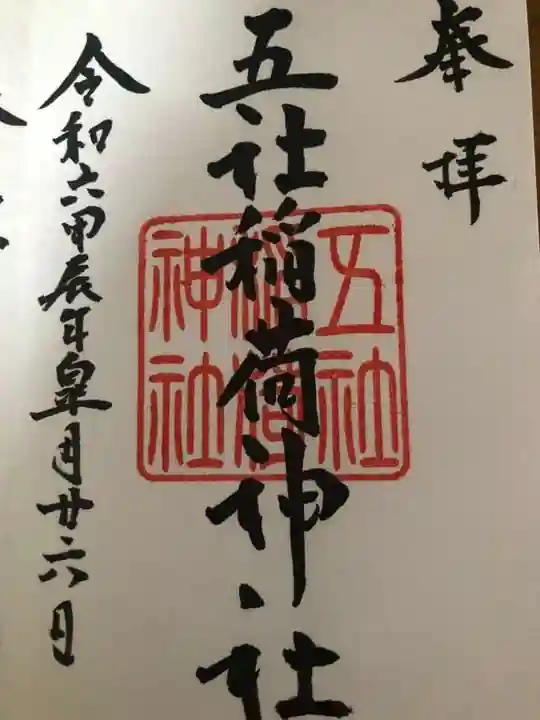 奉拝
五社稲荷神社
五社
稲荷
神社
令和六甲辰年皐月廿六日